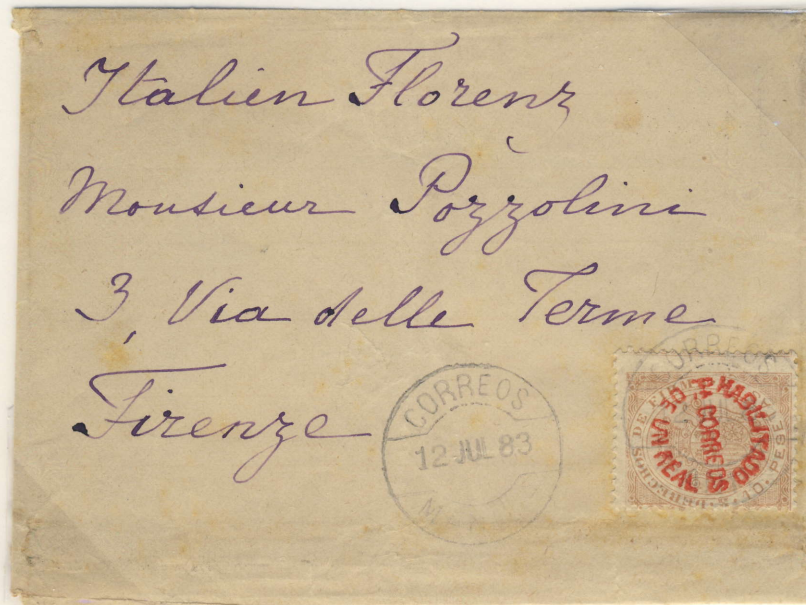 Italien Florenz
Monsieur Pozzolini
3, Via delle Terme
Firenze
CORREOS
12 JUL 83
CORREOS
HABILITADO
PA CORREOS
DE UN REAL
DERECHOS DE FIRMA